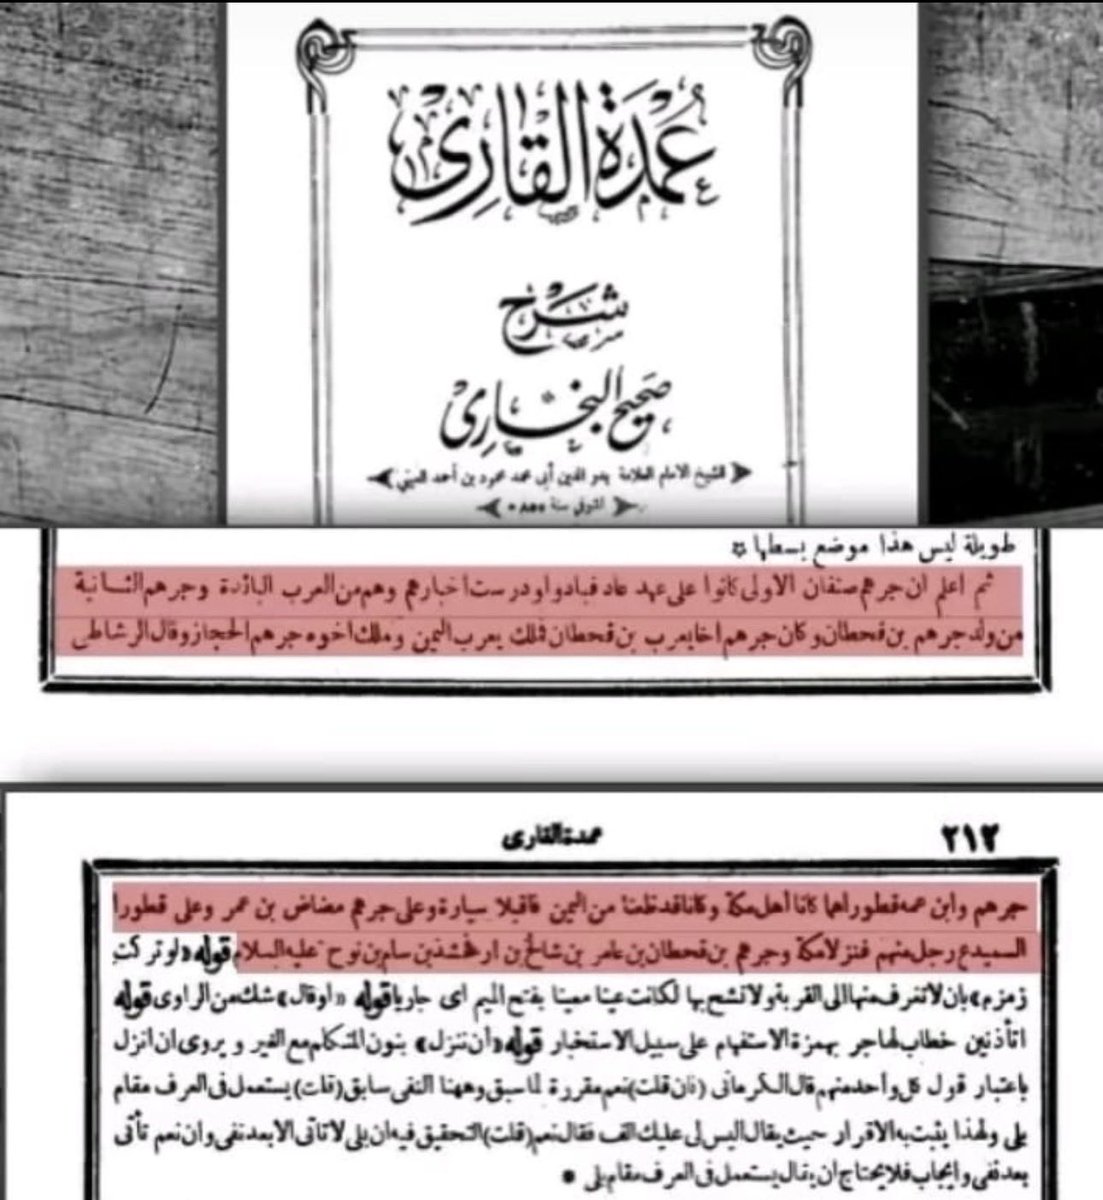 عُمْدَةُ القَارِئ
شرح
صحيح البخاري
للشيخ الامام العلامة بدر الدين أبي محمد محمود بن أحمد العيني
المتوفى سنة ٨٥٥ ه
طويلة ليس هذا موضع بسطها
ثم اعلم ان جرهم صنفان الاولى كانوا على عهد عاد فبادوا ودرست اخبارهم وهم من العرب البائدة وجرهم الثانية
من ولد جرهم بن قحطان وكان جرهم اخا يعرب بن قحطان فملك يعرب اليمن وملك اخوه جرهم الحجاز وقال الرشاطى
٢١٢ عمدة القارى
جرهم وابن عمه قطورا هما كانا أهل مكة وكانا قد ظعنا من اليمن فاقبلا سيارة وعلى جرهم مضاض بن عمر وعلى قطورا
السميدع رجل منهم فنزلا مكة وجرهم بن قحطان بن عامر بن شالخ بن ارفخشذ بن سام بن نوح عليه السلام قوله «لو تركت
زمزم» بان لا تغرف منها الى القربة ولا تشح بها لكانت عينا معينا بفتح الميم اى جاريا قوله «او قال» شك من الراوى قوله
اتأذنين خطاب لهاجر بهمزة الاستفهام على سبيل الاستخبار قوله «أن ننزل» بنون المتكلم مع الغير و يروى ان انزل
باعتبار قول كل واحد منهم قال الكرمانى (فان قلت) نعم مقررة لما سبق وههنا النفى سابق (قلت) يستعمل فى العرف مقام
بلى ولهذا يثبت به الاقرار حيث يقال اليس لى عليك الف فقال نعم (قلت) التحقيق فيه ان بلى لا تاتى الا بعد نفى وان نعم تأتى
بعد نفى وايجاب فلا يحتاج ان يقال يستعمل فى العرف مقام بلى *